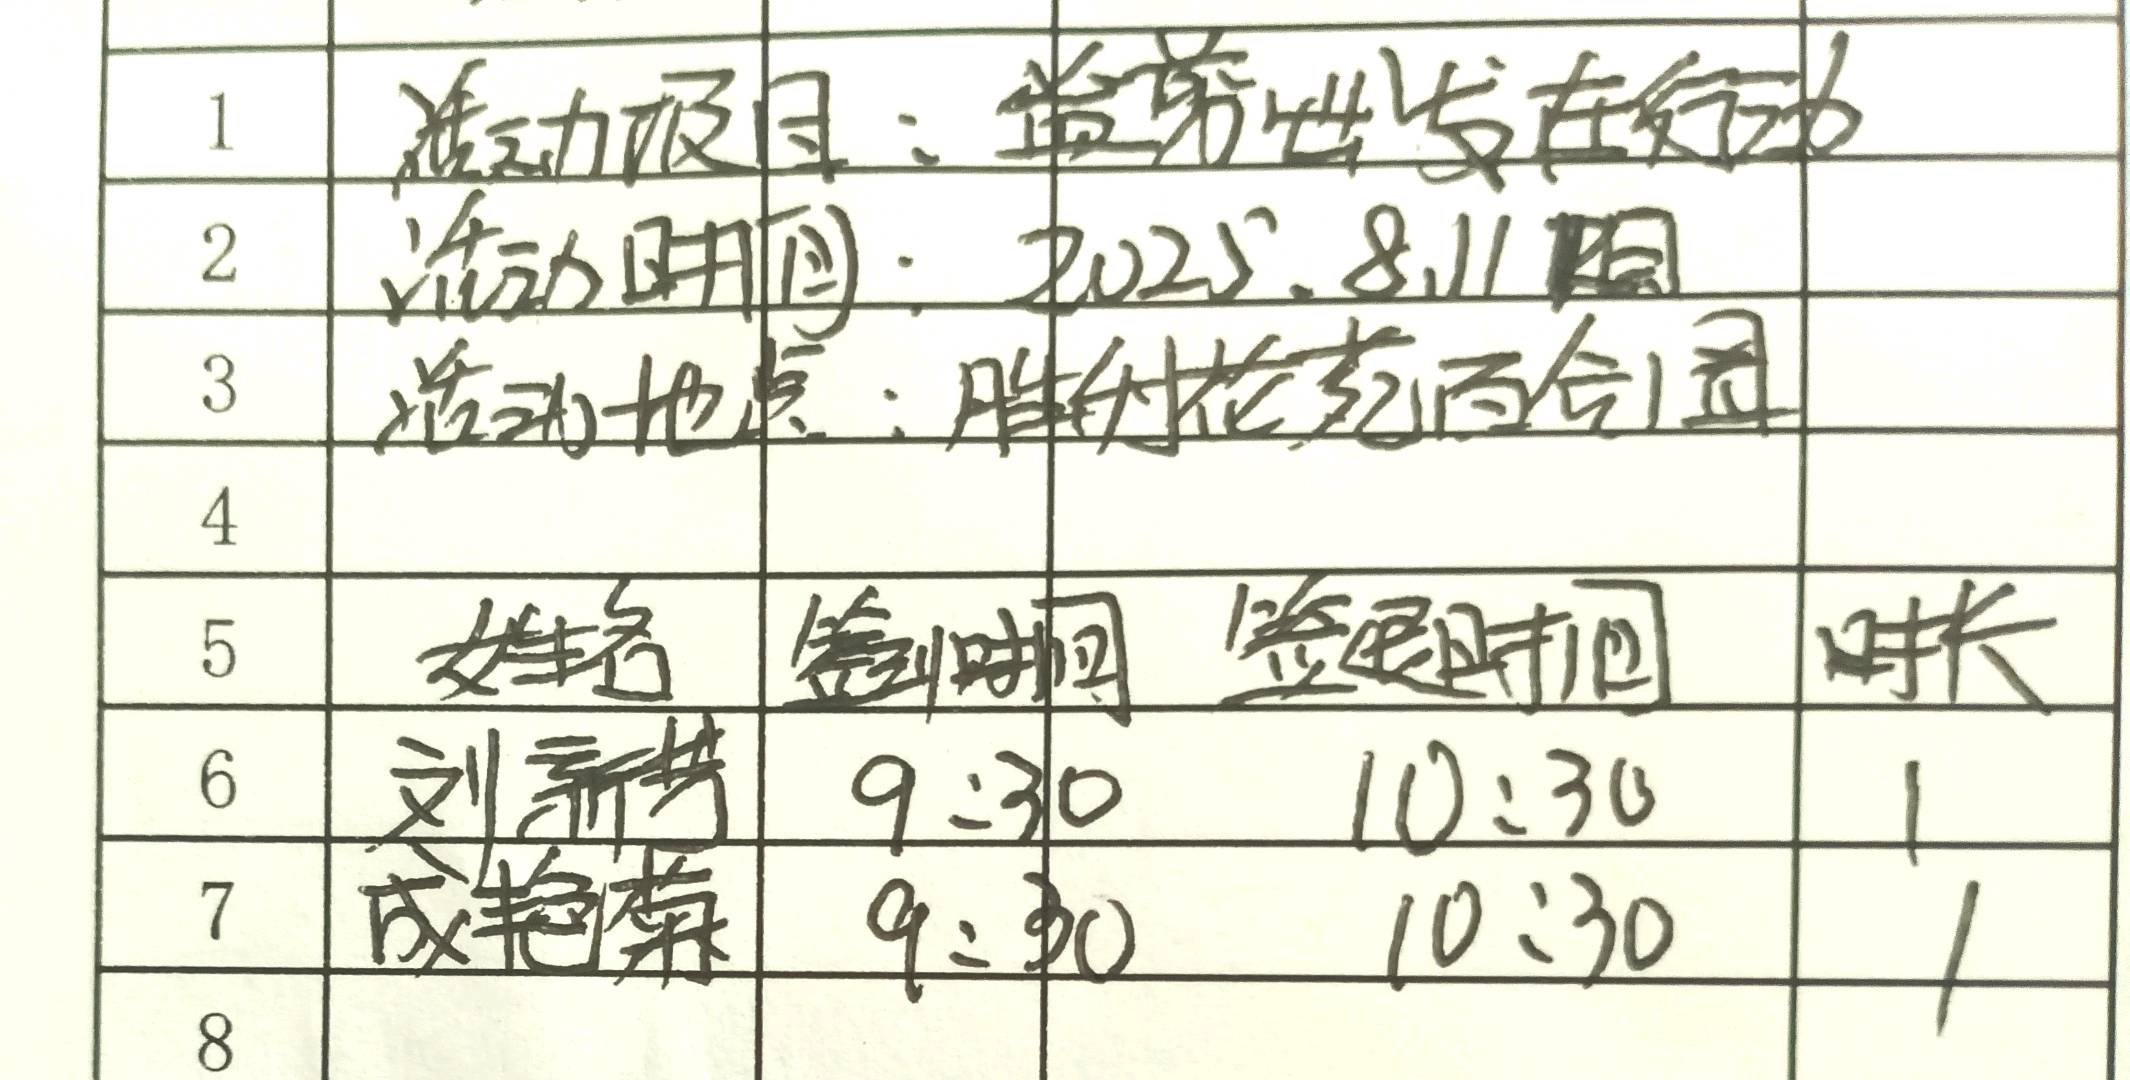 1 活动项目：益劳出发在行动
2 活动时间：2025.8.11
3 活动地点：胜利花苑百合1
4
5 姓名 签到时间 签退时间 时长
6 刘新芳 9:30 10:30 1
7 成艳菊 9:30 10:30 1
8